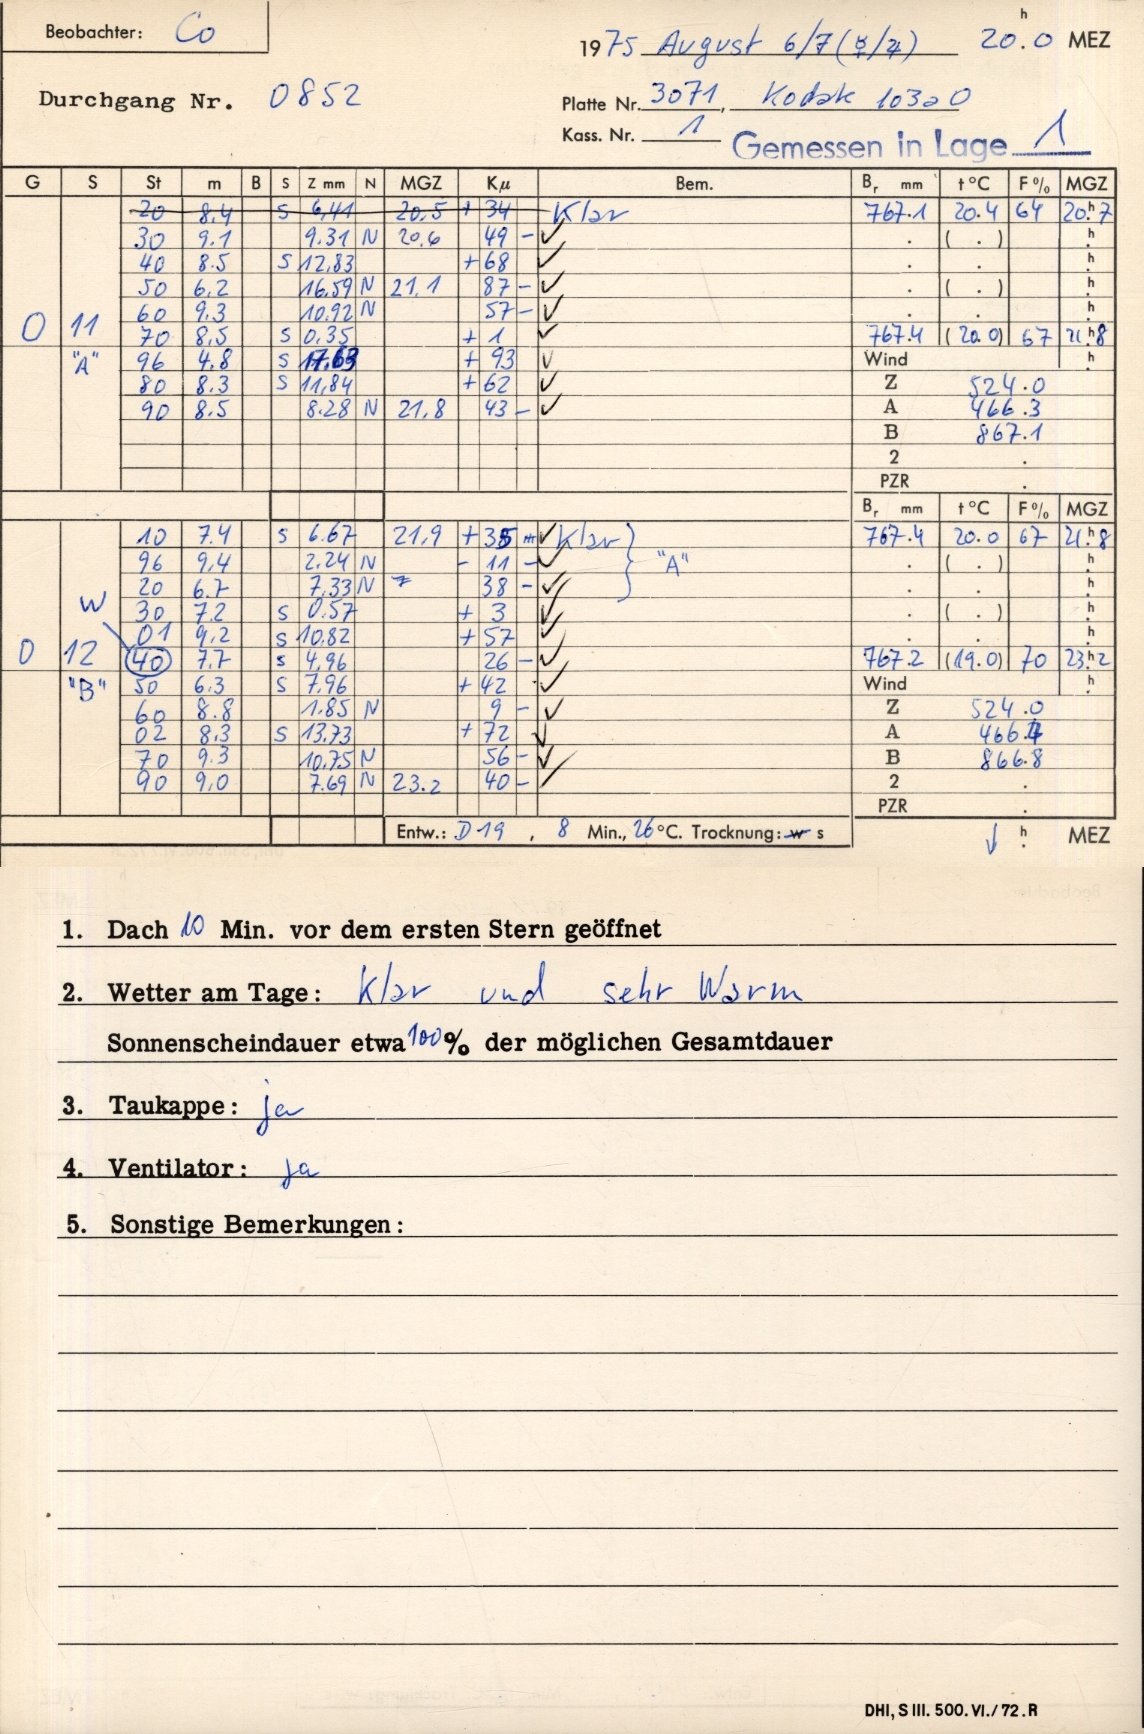 Beobachter: Co
1975 August 6/7 (☿/♃) 20h.0 MEZ
Durchgang Nr. 0852
Platte Nr. 3071, Kodak 103aO
Kass. Nr. 1 Gemessen in Lage 1
G S St m B S Z mm N MGZ Kμ Bem. Br mm t °C F % MGZ
20 8.4 S 6,41 20.5 + 34 Klar 767.1 20.4 64 20h.7
30 9.1 9.31 N 20,6 49 - ✓ . ( . ) h.
40 8.5 S 12,83 + 68 ✓ . . h.
50 6,2 16.59 N 21,1 87 - ✓ . ( . ) h.
60 9,3 10.92 N 57 - ✓ . . h.
0 11 70 8,5 S 0,35 + 1 ✓ 767.4 (20.0) 67 21h.8
"A" 96 4,8 S 17,63 + 93 ✓ Wind h.
80 8.3 S 11,84 + 62 ✓ Z 524.0
90 8.5 8.28 N 21,8 43 - ✓ A 466.3
B 867.1
2 .
PZR .
Br mm t °C F % MGZ
10 7.4 S 6.67 21,9 + 35 ✓ Klar } "A" 767.4 20.0 67 21h.8
96 9,4 2.24 N - 11 - ✓ . ( . ) h.
20 6.7 7,33 N 38 - ✓ . . h.
W 30 7.2 S 0.57 + 3 ✓ . ( . ) h.
01 9,2 S 10.82 + 57 ✓ . . h.
0 12 40 7,7 S 4,96 26 - ✓ 767.2 (19.0) 70 23h.2
"B" 50 6.3 S 7.96 + 42 ✓ Wind h.
60 8.8 1.85 N 9 - ✓ Z 524.0
02 8,3 S 13.73 + 72 ✓ A 466.4
70 9.3 10.75 N 56 - ✓ B 866.8
90 9,0 7.69 N 23.2 40 - ✓ 2 .
PZR .
Entw.: D 19 , 8 Min., 26 °C. Trocknung: w s ↓ h. MEZ
1. Dach 10 Min. vor dem ersten Stern geöffnet
2. Wetter am Tage: Klar und sehr Warm
Sonnenscheindauer etwa 100 % der möglichen Gesamtdauer
3. Taukappe: ja
4. Ventilator: ja
5. Sonstige Bemerkungen:
DHI, S III. 500. VI./72. R